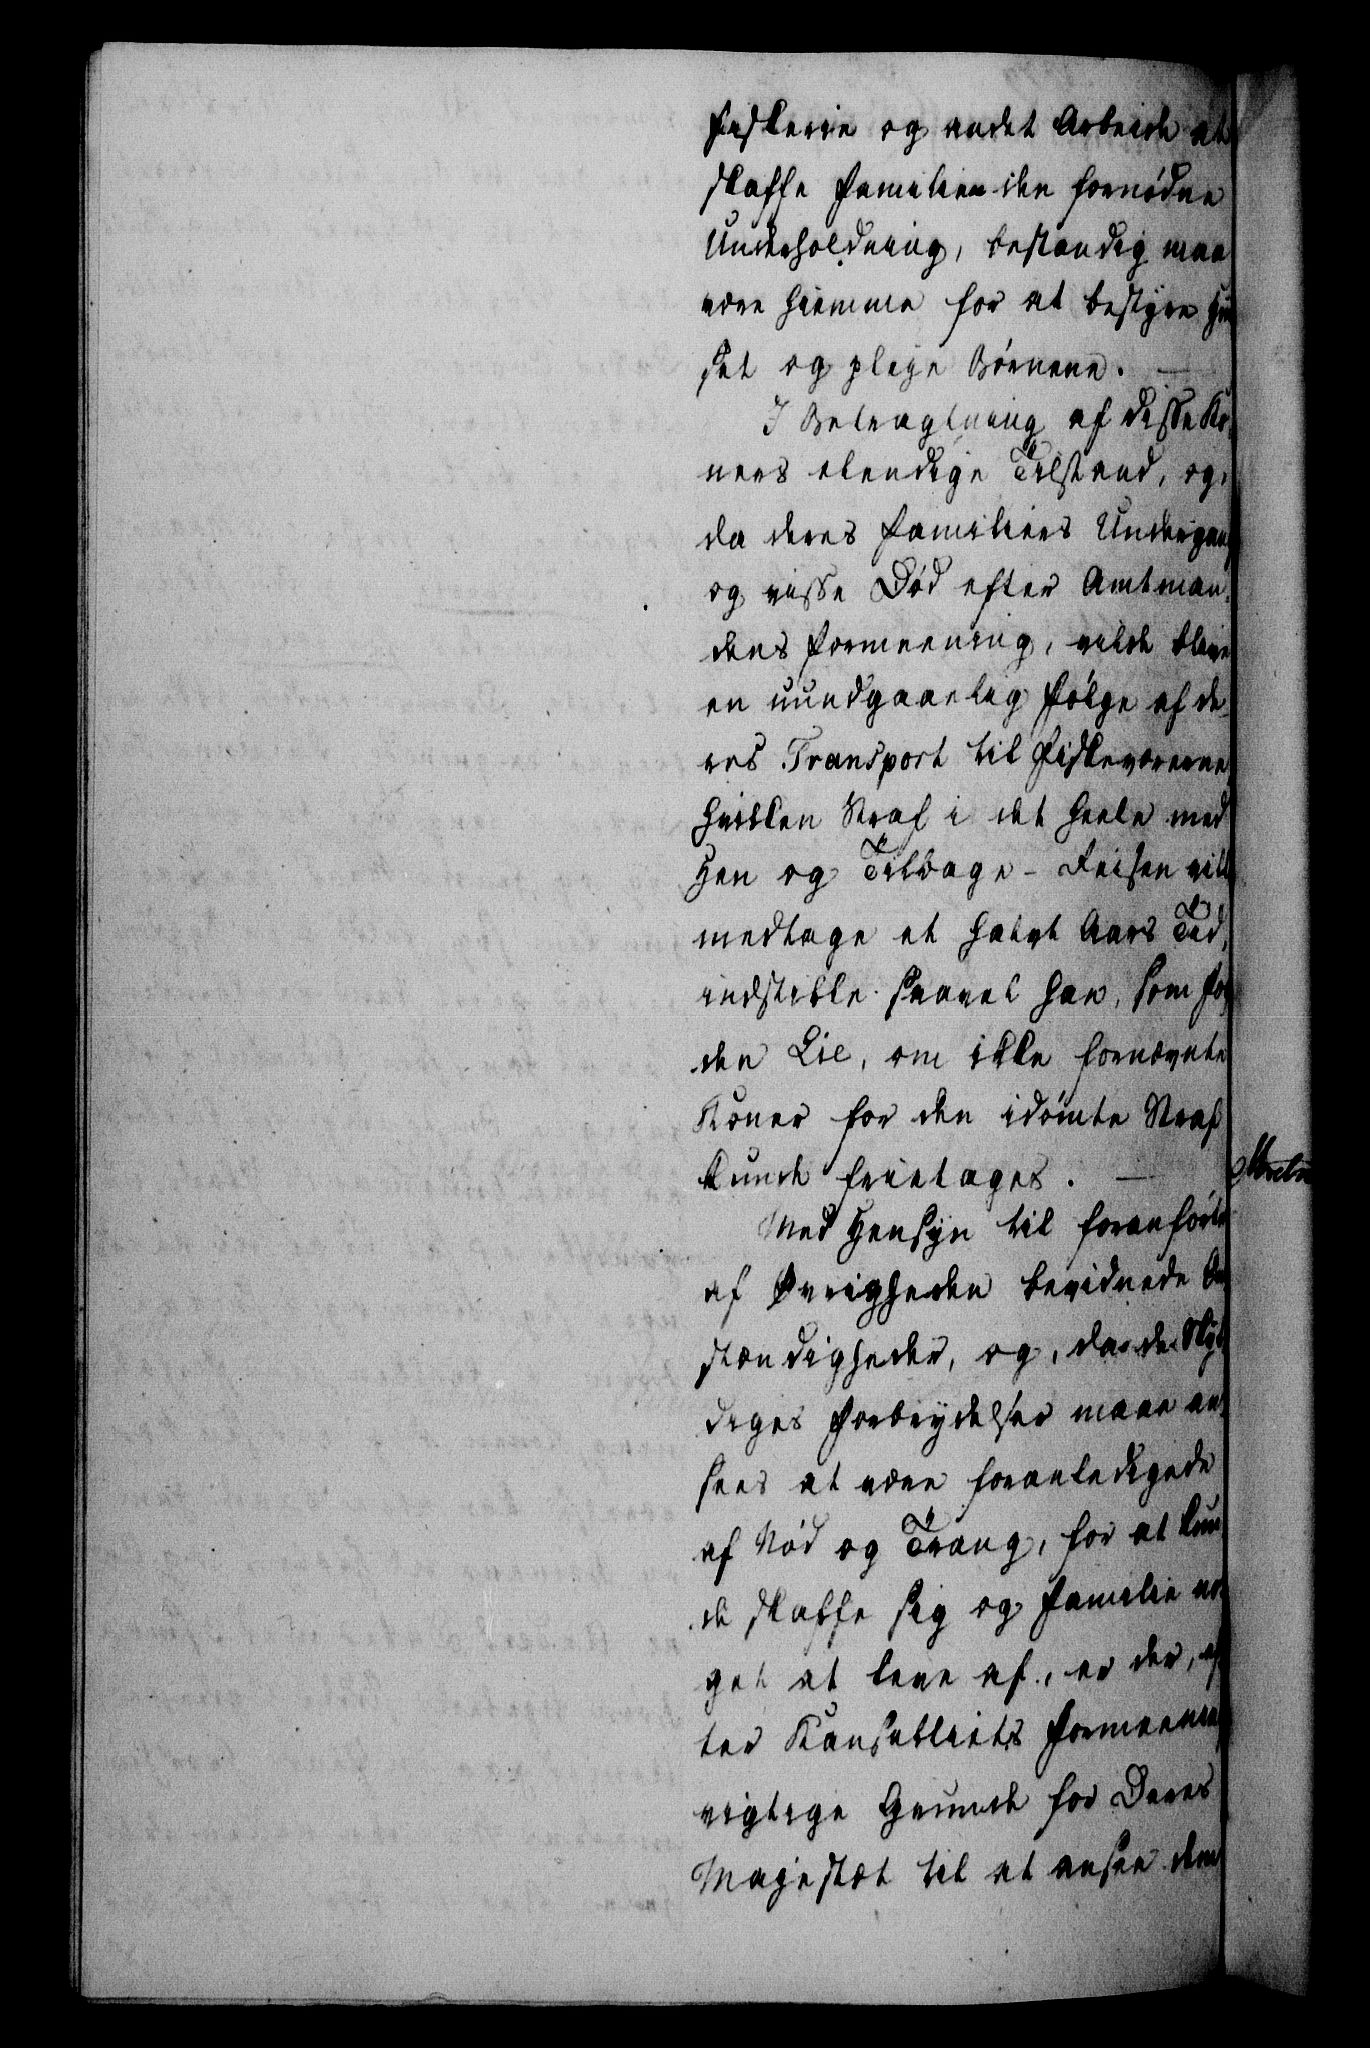 Fiskerie og andet Arbeide at
skaffe Familien den fornødne
Underholdning, bestandig maa
være hiemme for at bestyre Hu
set og pleye Børnene. —
I Betragtning af disse Ko
ners elendige Tilstand, og,
da deres Familiers Undergang
og visse Død efter Amtman-
dens Formeening, vilde blive
en uundgaaelig Følge af de-
res Transport til Fiskeværerne
hvilken Straf i det heele med
Hen og Tilbage-Reisen vil
medtage et halvt Aars Tid,
indstille saavel han, som Fo
den Lie, om ikke fornævnte
Koner for den idømte Straf
kunde fritages. —
Med Hensyn til foranførte
af Øvrigheden bevidnede Om
stændigheder, og, da de Skyl
diges Forbrydelser maae an
sees at være foranledigede
af Nød og Trang, for at kun
de skaffe sig og Familie no
get at leve af, er der, ef
ter Kanselliets Formeening
vigtige Grunde for Deres
Majestæt til at ansee dem